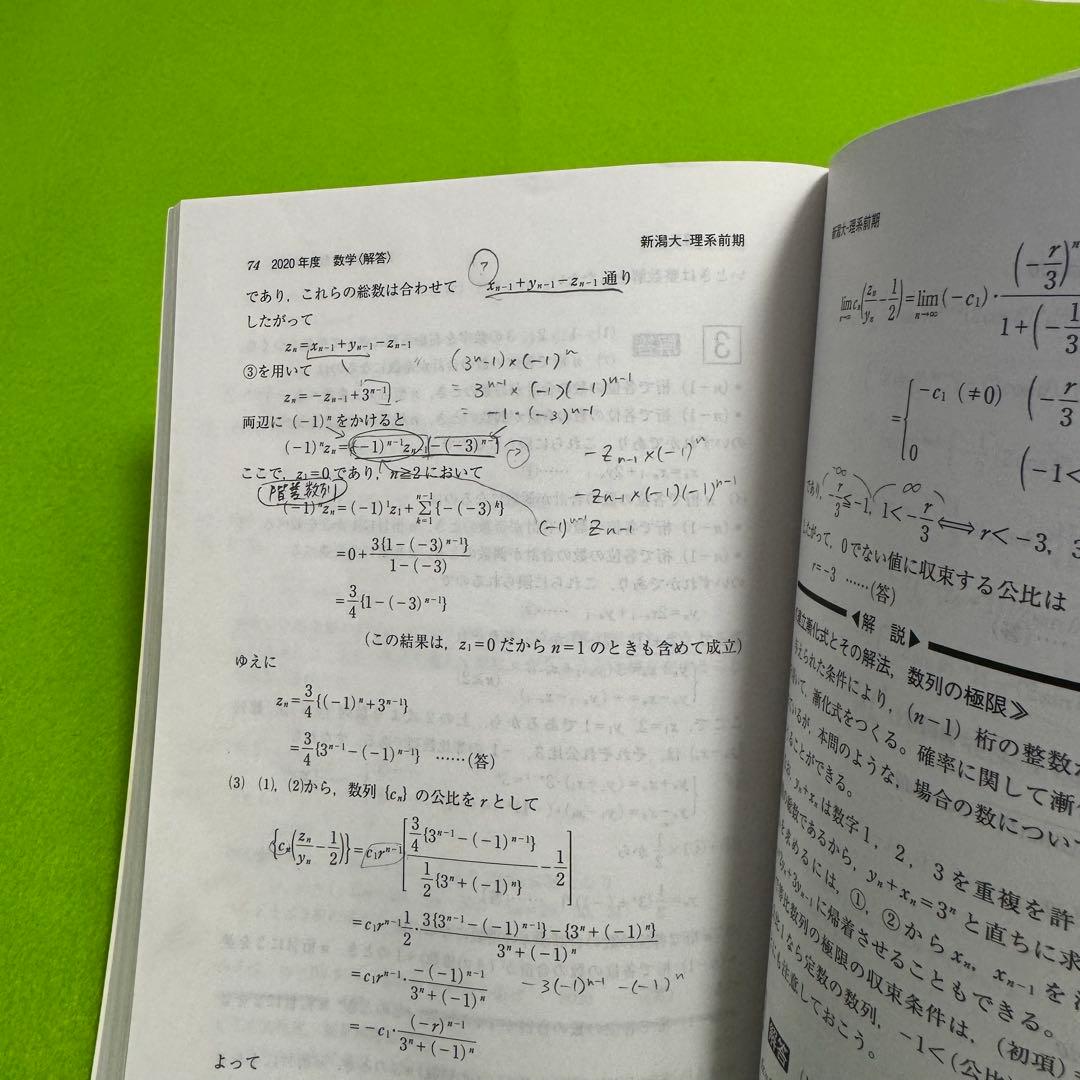 74 2020年度 数学〈解答〉
新潟大-理系前期
?
であり，これらの総数は合わせて x_{n-1}+y_{n-1}-z_{n-1} 通り
したがって
z_n=x_{n-1}+y_{n-1}-z_{n-1}
③を用いて
z_n=-z_{n-1}+3^{n-1}
両辺に (-1)^n をかけると
(-1)^n z_n=(-1)^{n-1}z_{n-1}-(-3)^{n-1}
?
ここで，z_1=0 であり，n≧2 において
階差数列
(-1)^n z_n=(-1)^1 z_1+\sum_{k=1}^{n-1}{-(-3)^k}
=0+\frac{3{1-(-3)^{n-1}}}{1-(-3)}
=\frac{3}{4}{1-(-3)^{n-1}}
(この結果は，z_1=0 だから n=1 のときも含めて成立)
ゆえに
z_n=\frac{3}{4}{(-1)^n+3^{n-1}}
=\frac{3}{4}{3^{n-1}-(-1)^{n-1}} ……(答)
(3) (1)，(2)から，数列 {c_n} の公比を r として
{c_n(\frac{z_n}{y_n}-\frac{1}{2})}=c_1r^{n-1}[\frac{\frac{3}{4}{3^{n-1}-(-1)^{n-1}}}{\frac{1}{2}{3^n+(-1)^n}}-\frac{1}{2}]
=c_1r^{n-1}\frac{1}{2}・\frac{3{3^{n-1}-(-1)^{n-1}}-{3^n+(-1)^n}}{3^n+(-1)^n}
=c_1r^{n-1}・\frac{-(-1)^{n-1}}{3^n+(-1)^n}
-3(-1)^{n-1}-(-1)^n
=-c_1・\frac{(-r)^{n-1}}{3^n+(-1)^n}
よって
(3^{n-1})×(-1)^n
=3^{n-1}×(-1)(-1)^{n-1}
=-1・(-3)^{n-1}
-z_{n-1}×(-1)^n
-z_{n-1}×(-1)(-1)^{n-1}
(-1)^{n-1}z_{n-1}
新潟大-理系前期
\lim_{n→∞}c_n(\frac{z_n}{y_n}-\frac{1}{2})=\lim_{n→∞}(-c_1)・\frac{(-\frac{r}{3})^n}{1+(-\frac{1}{3}
={-c_1 (≠0) (-\frac{r}{3}
0 (-1<
-∞ ∞
であり，-\frac{r}{3}≦-1，1<-\frac{r}{3}⟺r<-3，3
したがって，0でない値に収束する公比は
r=-3 ……(答)
◀解 説▶
連立漸化式とその解法，数列の極限≫
与えられた条件により，(n-1) 桁の整数
用いて，漸化式をつくる。確率に関して漸
いるが，本問のような，場合の数につい
ることができる。
y_n+x_n は数字 1，2，3 を重複を許
の総数であるから，y_n+x_n=3^n と直ちに求
を求めるには，①，②から x_n，x_{n-1} を
+3y_{n-1} に帰着させることもできる。
等比数列の極限の収束条件は，(初項)
1なら定数の数列，-1<(公比)
にも注意しておこう。
解答